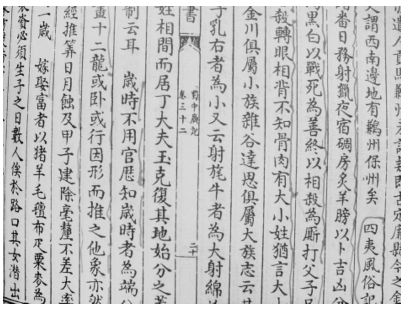 又謂西南邊地有鸛州保州矣 四夷風俗記
諸番日務射獵夜宿碉房炙羊膀以卜吉凶
黑白以戰死為善終以相殺為廝打父子兄
殺轉眼相背不知骨肉有大小姓猶言大
金川俱屬小族雜谷達思俱屬大族志云其
子乳右者為小又云射旄牛者為大射綿
書 蜀中廣記 卷三十二 二十
姓相間而居丁大夫玉克復其地始分之
制云耳 歲時不用官歷知歲時者為端公
畫十二龍或卧或行因形而推之他象亦然
經推筭日月蝕及甲子建除毫釐不差大率
一歲 嫁娶富者以猪羊毛氊布疋粟麥為
必須生子之日數人俟於路口其女潛出